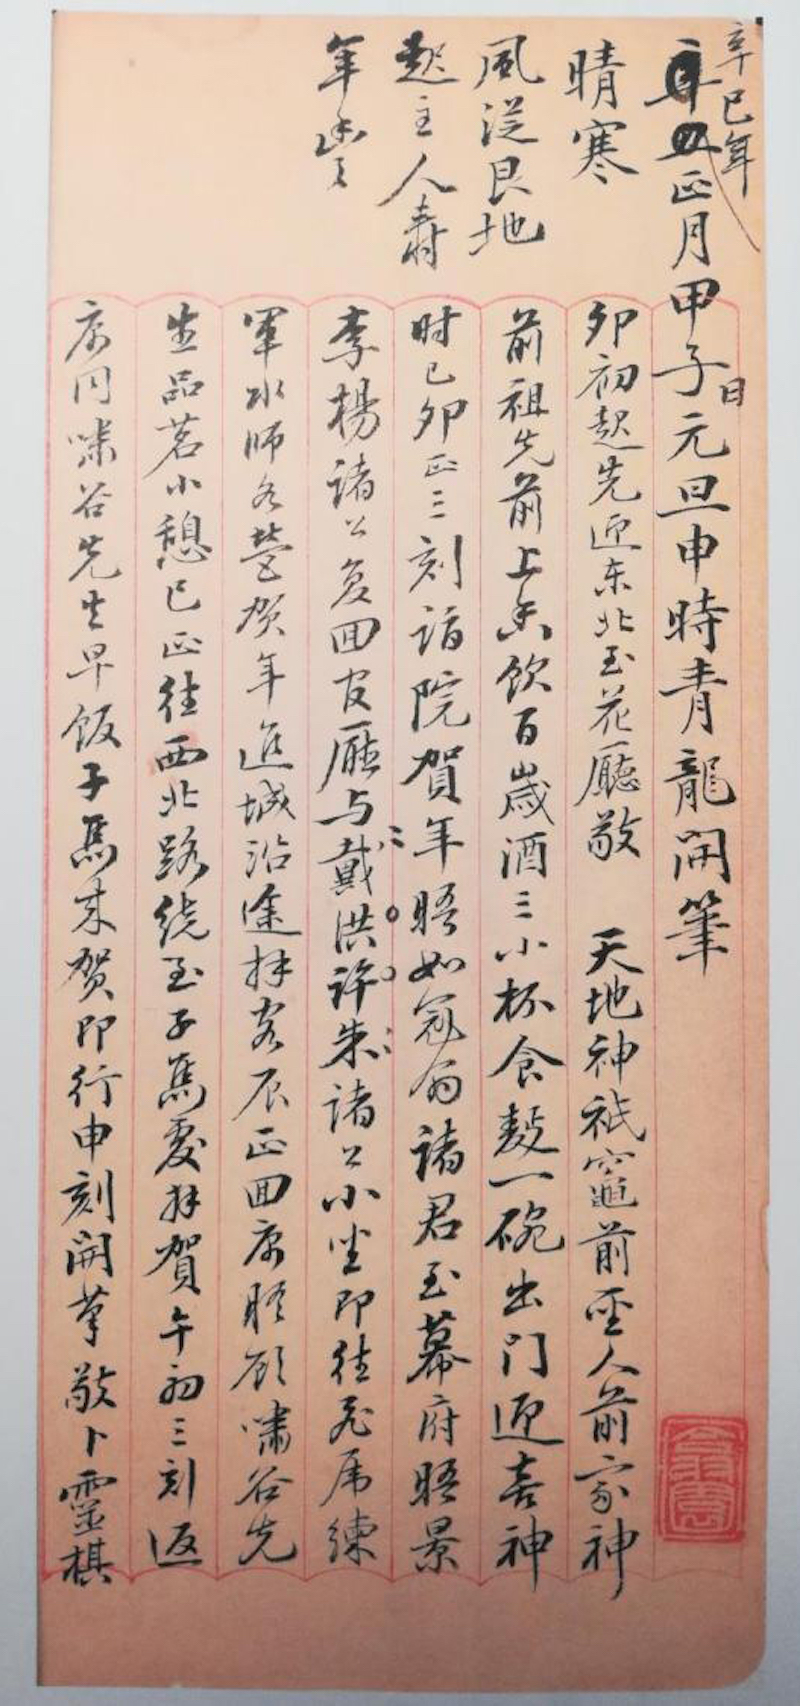 辛巳年
正月甲子日元旦申時青龍開筆
晴寒
風從艮地
起主人壽
年豐
卯初起先迎东北至花廳敬 天地神祇竈前聖人前家神
前祖先前上香飲百歲酒三小杯食麫一碗出门迎喜神
时已卯正三刻詣院賀年晤如冠翁諸君至幕府晤景
李楊諸公复回官廳与戴洪許朱諸公小坐即往飛虎練
軍水师各营贺年進城沿途拜客辰正回寓晤顾嘯谷先
生品茗小憩巳正往西北路绕至子馬處拜賀午初三刻返
寓同嘯谷先生早饭子馬来贺即行申刻開筆敬卜靈棋